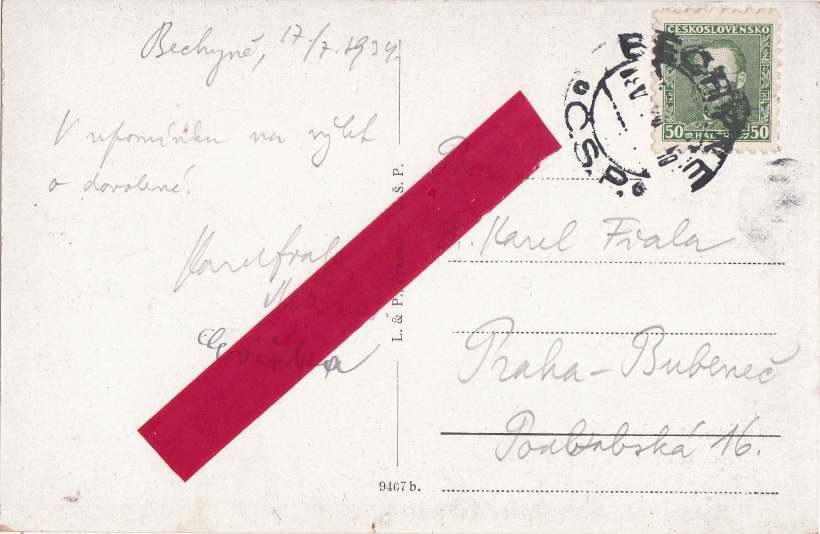 Bechyně, 17/7. 1934.
V upomínku na výlet
o dovolené.
Karel
L. & P.
Š. P.
9467 b.
ČESKOSLOVENSKO
50 HAL. 50
BECHYNĚ
Č.S.P.
Karel Fiala
Praha - Bubeneč
Podbabská 16.